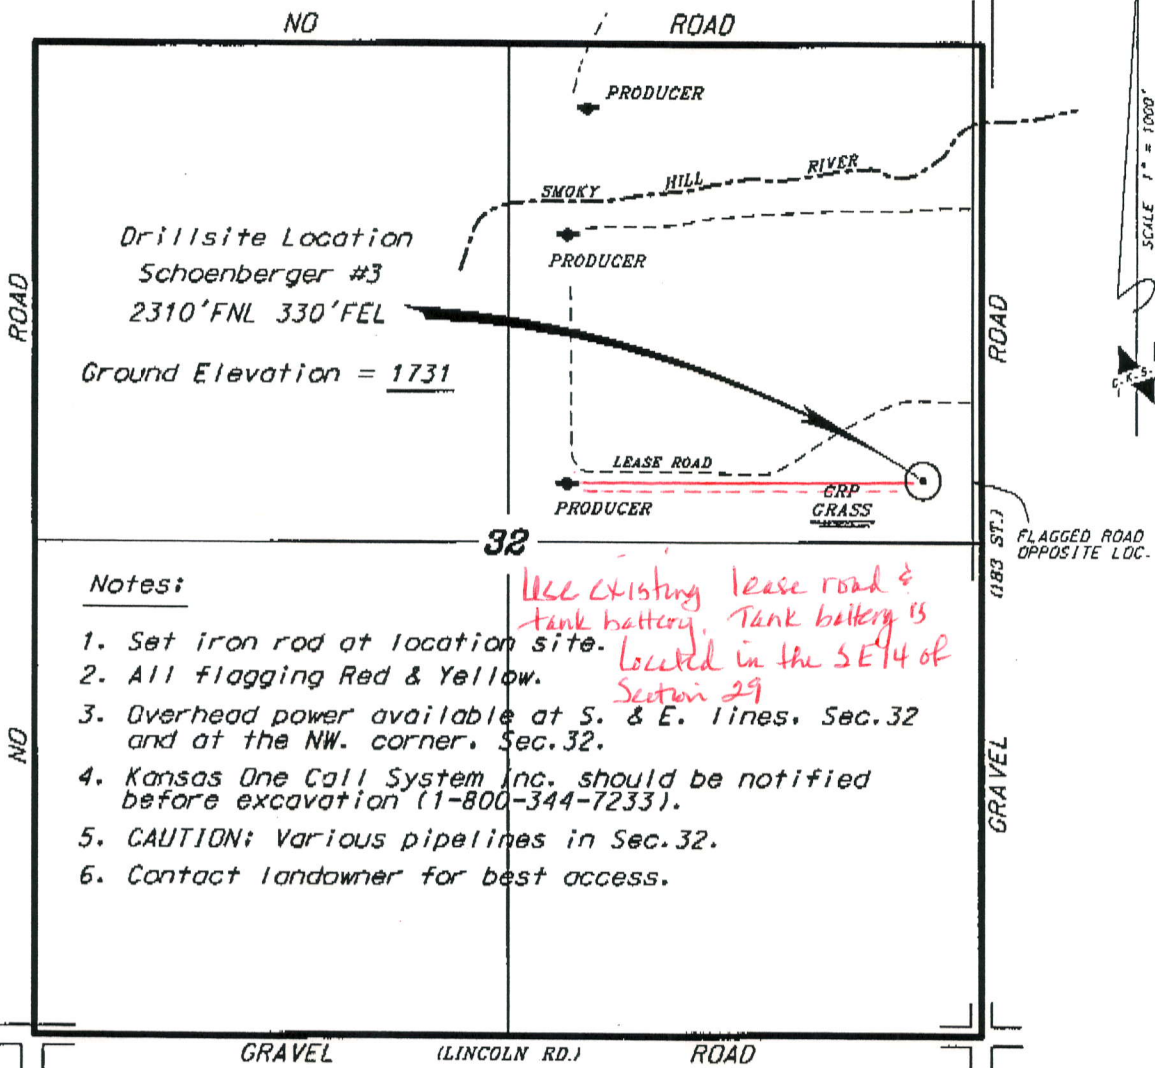 NO ROAD
PRODUCER
SCALE 1" = 1000'
SMOKY HILL RIVER
Drillsite Location
Schoenberger #3
2310'FNL 330'FEL
PRODUCER
ROAD
ROAD
Ground Elevation = 1731
C.K.S.
LEASE ROAD
CRP
GRASS
PRODUCER
32
(183 ST.)
FLAGGED ROAD
OPPOSITE LOC.
Notes:
Use existing lease road &
tank battery. Tank battery is
Located in the SE/4 of
Section 29
1. Set iron rod at location site.
2. All flagging Red & Yellow.
3. Overhead power available at S. & E. lines. Sec.32
and at the NW. corner. Sec.32.
4. Kansas One Call System Inc. should be notified
before excavation (1-800-344-7233).
5. CAUTION: Various pipelines in Sec.32.
6. Contact landowner for best access.
NO
GRAVEL
GRAVEL (LINCOLN RD.) ROAD